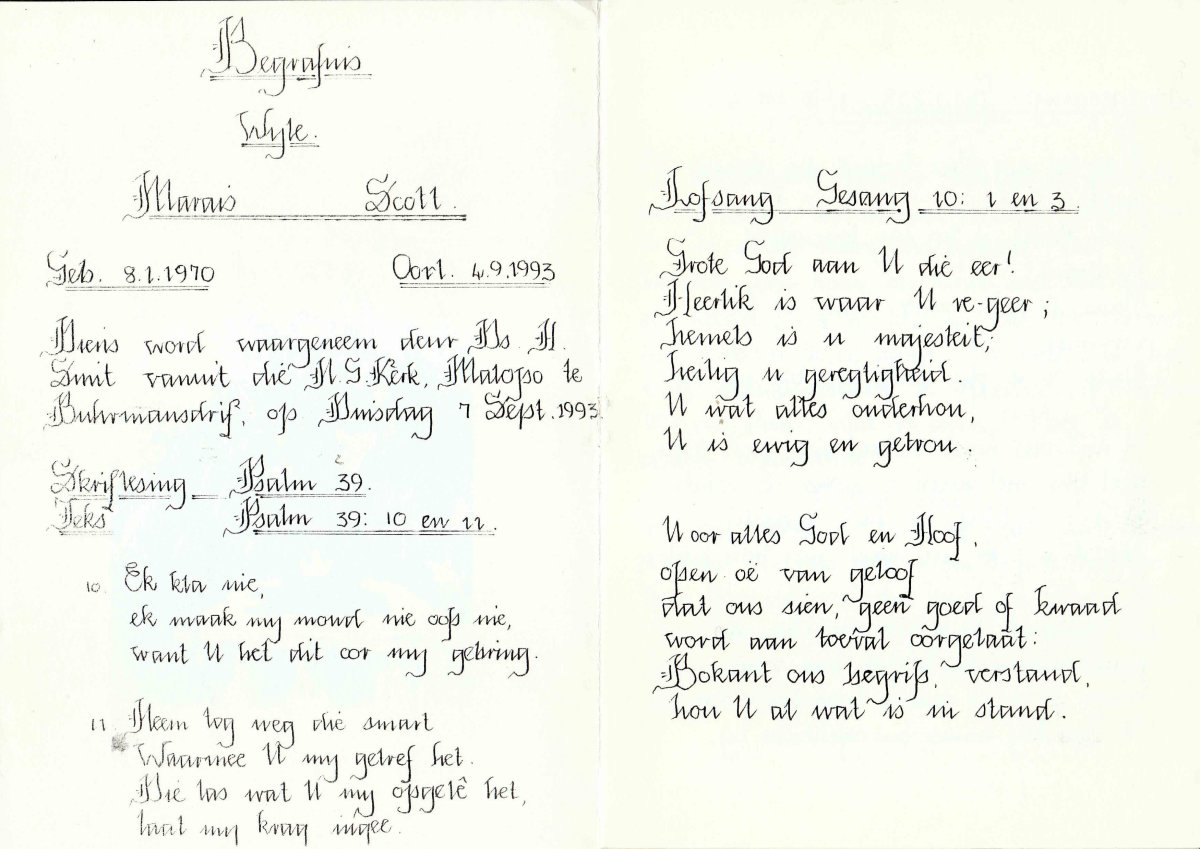 Begrafnis
Wyle.
Marais Scott.
Geb. 8.1.1970 Oorl. 4.9.1993
Diens word waargeneem deur Ds H.
Smit vanuit die N.G. Kerk, Matopo te
Buhrmansdrif, op Dinsdag 7 Sept. 1993.
Skriflesing Psalm 39.
Teks Psalm 39: 10 en 11.
10. Ek kla nie,
ek maak my mond nie oop nie,
want U het dit oor my gebring.
11. Neem tog weg die smart
Waarmee U my getref het.
Die las wat U my opgelê het,
laat my krag ingee.
Lofsang Gesang 10: 1 en 3.
Grote God aan U die eer!
Heerlik is waar U re-geer;
hemels is u majesteit;
heilig u geregtigheid.
U wat alles onderhou,
U is ewig en getrou.
Voor alles God en Hoof,
open oë van geloof
dat ons sien, geen goed of kwaad
word aan toeval oorgelaat:
Bokant ons begrip, verstand,
hou U al wat is in stand.